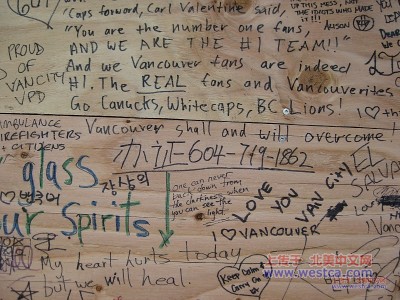 UP THIS MESS, NOT
THE IDIOTS WHO MADE
IT!!!
ALISON
"Caps forward, Carl Valentine said,
"You are the number one fans,
AND WE ARE THE #1 TEAM!!"
And we Vancouver fans are indeed
#1. The REAL fans and Vancouverites
Go Canucks, Whitecaps, BC Lions!
PROUD
OF
VANCITY
VPD
I ♡ this
AMBULANCE
FIREFIGHTERS
+ CITIZENS
Vancouver shall and will overcome!
办证604-719-1862
glass
장상의
our Spirits
one can never
back down from
the darkness when
you can see the
light.
LOVE
YOU
VAN CITY
EL
SALVA
I ♡ VANCOUVER
My heart hurts today
but we will heal.
Keep Calm &
Carry On
上传于 北美中文网
www.westca.com